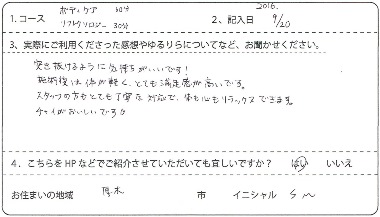 1.コース ボディケア 60分
リフレクソロジー 30分
2、記入日 2016. 9/20
3、実際にご利用くださった感想やゆるりらについてなど、お聞かせください。
突き抜けるように気持ちがいいです！
施術後は体が軽く、とても満足感が高いです。
スタッフの方もとても丁寧な対応で、体も心もリラックスできます。
チャイがおいしいです
4．こちらをHPなどでご紹介させていただいても宜しいですか？ はい いいえ
お住まいの地域 厚木 市 イニシャル S M